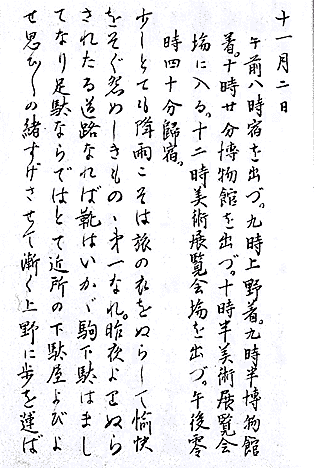 十一月二日
午前八時宿を出づ。九時上野着。九時半博物館
着。十時廿分博物館を出づ。十時半美術展覧会
場に入る。十二時美術展覧会場を出づ。午後零
時四十分歸宿。
少しとても降雨こそは旅の衣をぬらして愉快
をそぐ忽めしきものゝ第一なれ。昨夜よりぬら
されたる道路なれば靴はいかゞ駒下駄はまし
てなり足駄ならではとて近所の下駄屋よびよ
せ思ひ〳〵の緒すげさせて漸く上野に歩を運ば